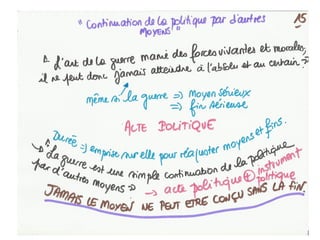 "Continuation de la politique par d'autres
MOYENS"
15
L'art de la guerre manie des forces vivantes et morales,
il ne peut donc jamais atteindre à l'absolu et au certain →
même si la guerre ⇒ moyen sérieux
⇒ fin sérieuse
ACTE POLITIQUE
Durée ⇒ emprise sur elle pour réajuster moyens et fins.
"La guerre est une simple continuation de la politique
par d'autres moyens"
→ acte politique + instrument
politique
JAMAIS LE MOYEN NE PEUT ETRE CONÇU SANS LA FIN